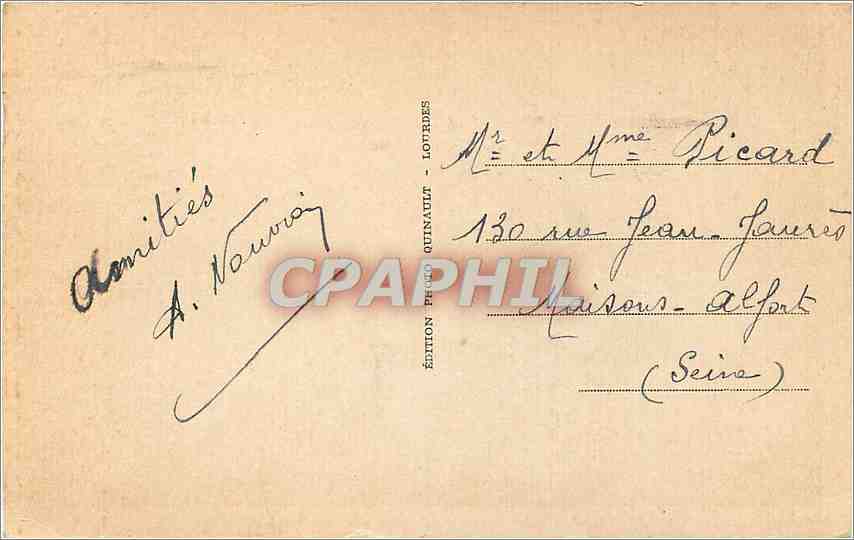 Amitiés
A.
ÉDITION PHOTO QUINAULT - LOURDES
Mr et Mme Picard
130 rue Jean-Jaurès
Maisons-Alfort
(Seine)
CPAPHIL